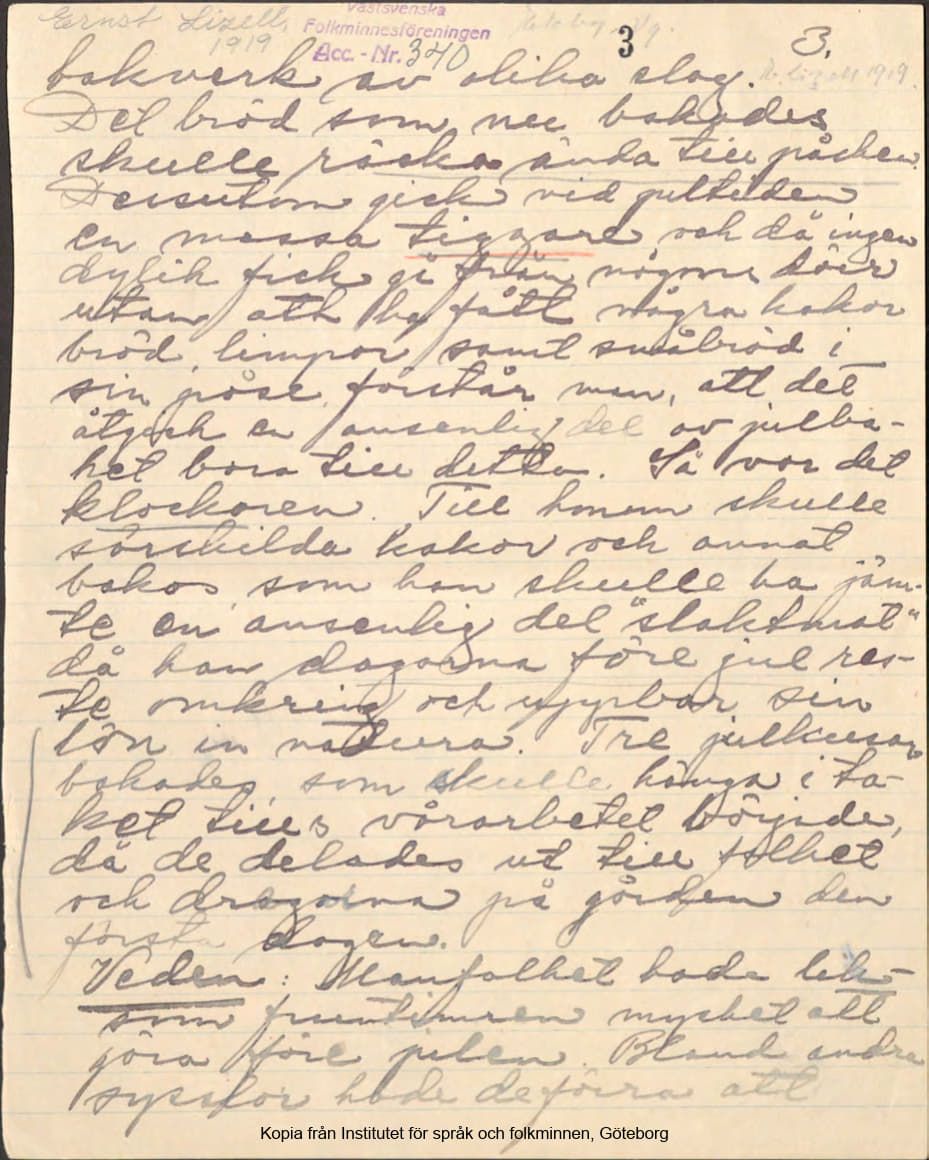 Ernst Lizell,
1919
Västsvenska
Folkminnesföreningen
Acc. - Nr. 340
3
3.
E. Lizell 1919.
bakverk av olika slag.
Det bröd som nu bakades
skulle räcka ända till påsken.
Dessutom gick vid jultiden
en massa tiggare och då ingen
dylik fick gå från någons dörr
utan att ha fått några kakor
bröd, limpor samt småbröd i
sin påse, förstår man, att det
åtgick en ansenlig del av julba-
ket bara till detta. Så var det
klockaren. Till honom skulle
särskilda kakor och annat
bakas, som han skulle ha jäm-
te en ansenlig del "slaktmat"
då han dagarna före jul res-
te omkring och uppbar sin
lön in natura. Tre julkusar
bakades, som skulle hänga i ta-
ket tills vårarbetet började,
då de delades ut till folket
och dragarna på gården den
första dagen.
Veden: Manfolket hade lik-
som fruntimren mycket att
göra före julen. Bland andra
sysslor hade de förra att
Kopia från Institutet för språk och folkminnen, Göteborg